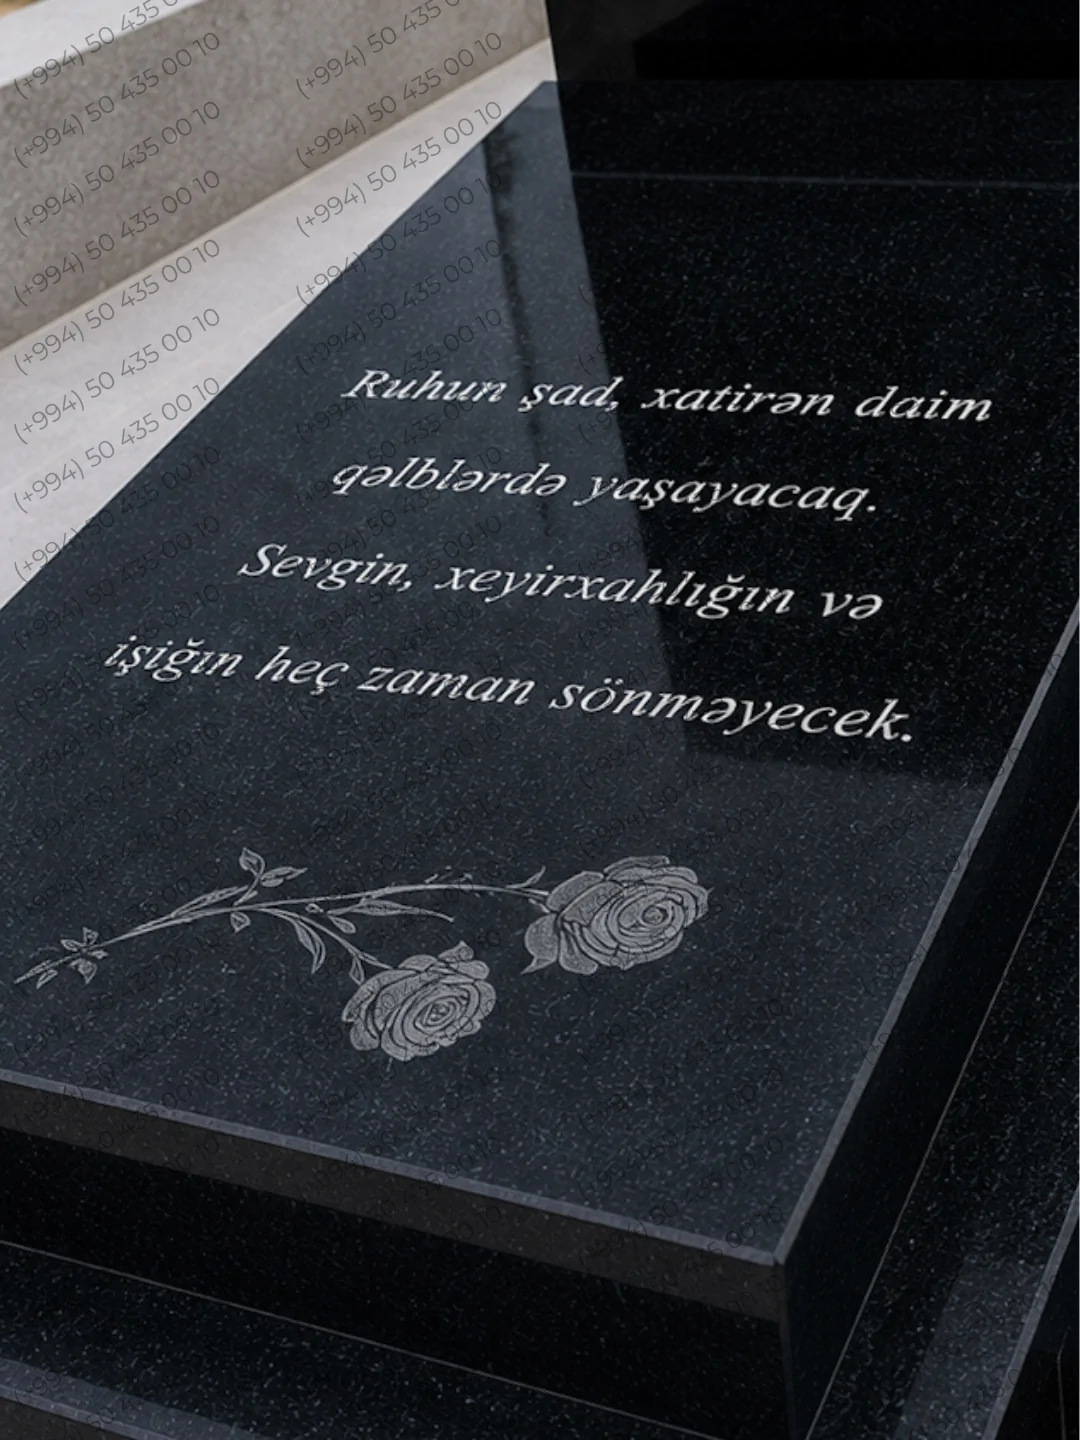 Ruhun şad, xatirən daim
qəlblərdə yaşayacaq.
Sevgin, xeyirxahlığın və
işiğın heç zaman sönməyecek.
(+994) 50 435 00 10